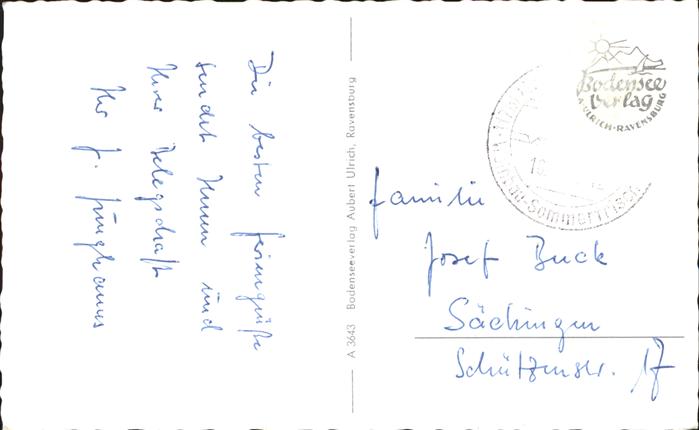 Die besten Feriengrüße
sendet Ihnen und
Ihrer Belegschaft
Ihr J. Junghanns
A 3643 Bodenseeverlag Aubert Ulrich, Ravensburg
Bodensee
Verlag
A. ULRICH-RAVENSBURG
Sommerfrische
Familie
Josef Buck
Sächingen
Schützenstr. 17